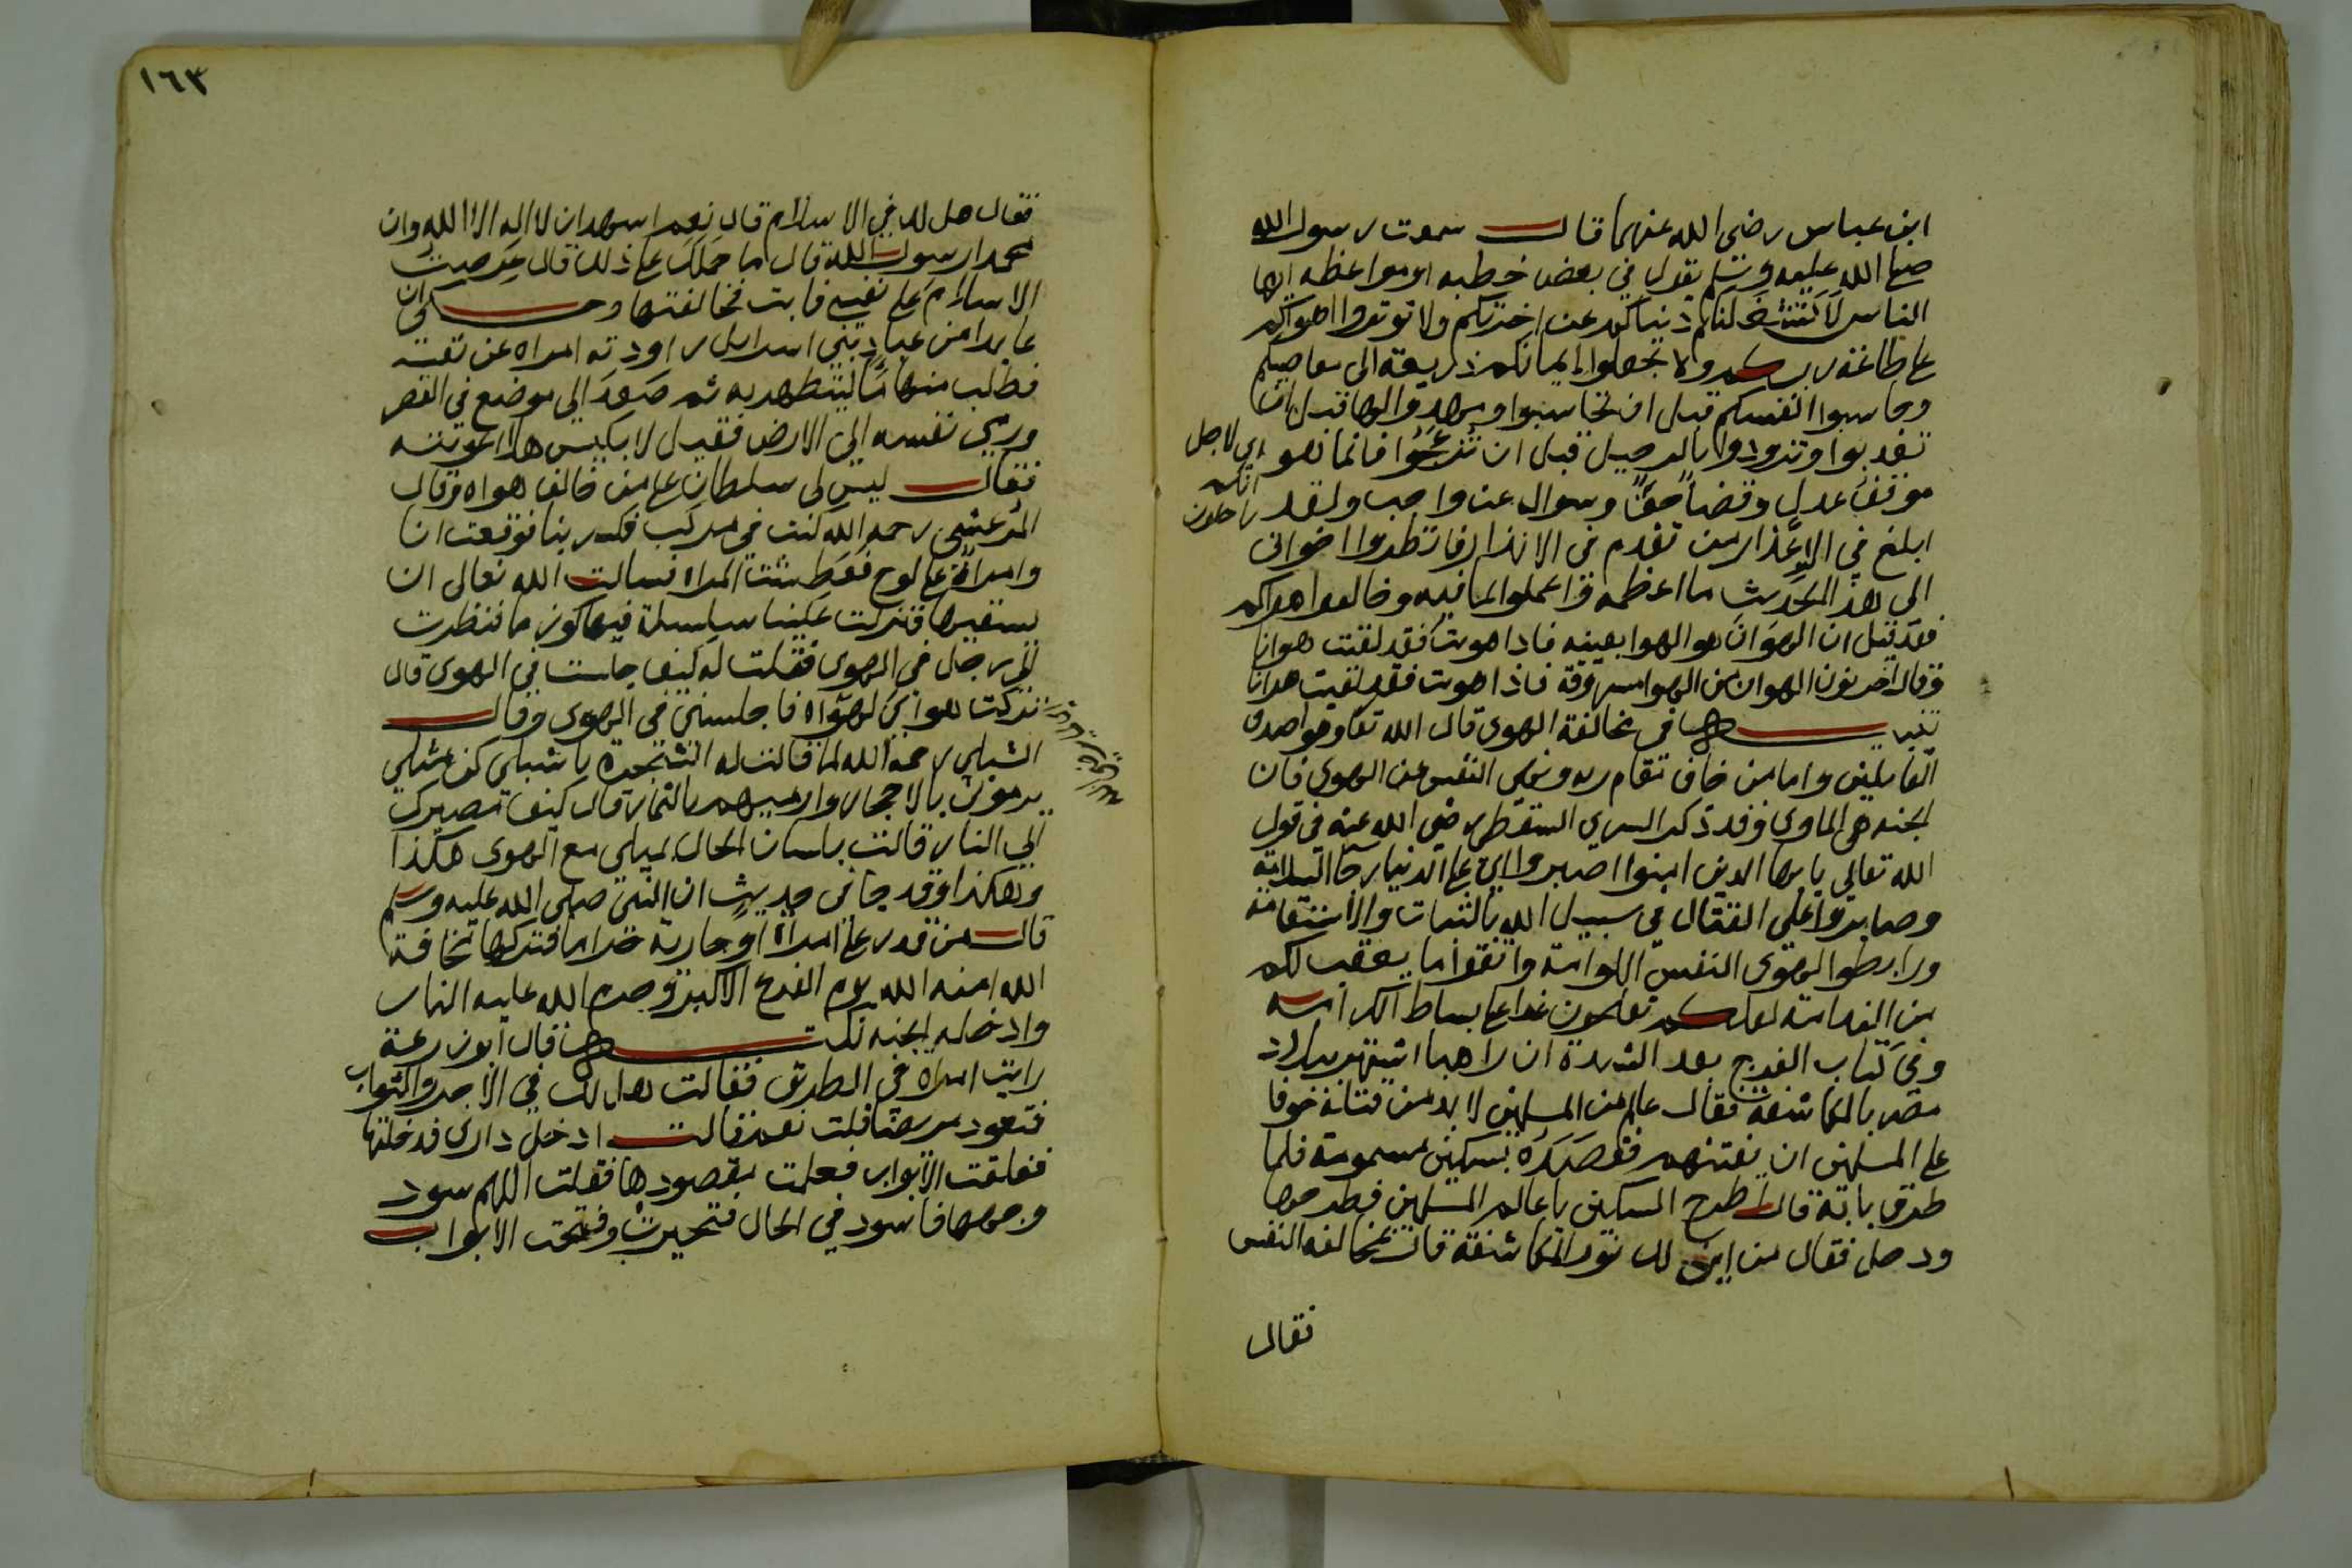 ابن عباس رضى الله عنهما قال سمعت رسول الله
صلى الله عليه وسلم يقول في بعض خطبه او مواعظه ايها
الناس لا تشغلنكم دنياكم عن اخرتكم ولا توثروا اهواكم
على طاعة ربكم ولا تجعلوا ايمانكم ذريعة الى معاصيكم
وحاسبوا انفسكم قبل ان تحاسبوا ومهدوا لها قبل ان
تعذبوا وتزودوا بالرحيل قبل ان تزعجوا فانما هو
اي لاجل
انكم
راحلون
موقف عدل وقضا حق وسوال عن واجب ولقد
ابلغ في الاعذار من تقدم في الانذار فانظروا اخوانى
الى هذا الحديث ما اعظمه فاعملوا بما فيه وخالفوا هواكم
فقد قيل ان الهوان هو الهوا بعينه فاذا هويت فقد لقيت هوانا
وقال اخر نون الهوان من الهوا مسروقة فاذا هويت فقد لقيت هوانا
تنبيه في مخالفة الهوى قال الله تعا وهو اصدق
القايلين واما من خاف مقام ربه ونهى النفس عن الهوى فان
الجنه هي الماوى وقد ذكر السري السقطى رضي الله عنه في قول
الله تعالى يا ايها الدين امنوا اصبروا اي على الدنيا رجا السلامة
وصابروا على القتال في سبيل الله بالثبات والاستقامة
ورابطوا لهوى النفس اللوامة واتقوا ما يعقب لكم
من الندامة لعلكم تفلحون غدا على بساط الكرامه
وفي كتاب الفرج بعد الشدة ان راهبا اشتهر ببلاد
مصر بالمكاشفة فقال عالم من المسلمين لا بد من قتله خوفا
على المسلمين ان يفتنهم فقصده بسكين مسمومة فلما
طرق بابه قال اطرح السكين يا عالم المسلمين فطرحها
ودخل فقال من اين لك نور المكاشفة قال بمخالفة النفس
فقال
١٦٣
فقال هل لك في الاسلام قال نعم اشهد ان لا اله الا الله وان
محمدا رسول الله قال ما حملك على ذلك قال عرضت
الاسلام على نفسي فابت فخالفتها وحكى ان
عابدا من عباد بني اسرايل راودته امراه عن نفسه
فطلب منها ما ليتطهر به ثم صعد الى موضع في القصر
ورمى نفسه الى الارض فقيل لابليس هلا اغويته
فقال ليس لى سلطان على من خالف هواه وقال
المرعشى رحمه الله كنت في مركب فكسر بنا فوقعت انا
وامراة على لوح فعطشت المراه فسالت الله تعالى ان
يسقيها فنزلت علينا سلسلة فيها كوز ما فنظرت
الى رجل في الهوى فقلت له كيف جلست في الهوى قال
تركت هواى لهواه فاجلسنى في الهوى وقال
الشبلى رحمه الله لما قالت له الشجرة يا شبلى كن مثلي
يرمونى بالاحجار وارميهم بالثمار قال كيف مصيرك
الى النار قالت بلسان الحال لميلى مع الهوى هكذا
وهكذا وقد جا في حديث ان النبى صلى الله عليه وسلم
قال من قدر على امراة او جارية حراما فتركها مخافة
الله امنه الله يوم الفزع الاكبر وحرم الله عليه النار
وادخله الجنه نكتة قال ابو زرعة
رايت امراه في الطريق فقالت هل لك في الاجر والثواب
فتعود مريضا قلت نعم قالت ادخل دارى فدخلتها
فغلقت الابواب فعلمت مقصودها فقلت اللهم سود
وجهها فاسود في الحال فتحيرت وفتحت الابواب